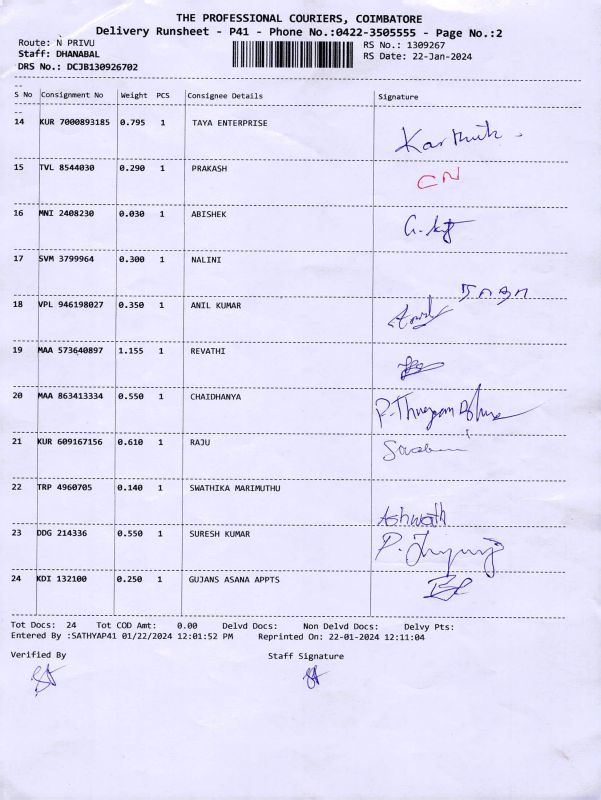 THE PROFESSIONAL COURIERS, COIMBATORE
Delivery Runsheet - P41 - Phone No.:0422-3505555 - Page No.:2
Route: N PRIVU RS No.: 1309267
Staff: DHANABAL RS Date: 22-Jan-2024
DRS No.: DCJB130926702
S No Consignment No Weight PCS Consignee Details Signature
14 KUR 7000893185 0.795 1 TAYA ENTERPRISE
Karthik
15 TVL 8544030 0.290 1 PRAKASH
CN
16 MNI 2408230 0.030 1 ABISHEK
17 SVM 3799964 0.300 1 NALINI
18 VPL 946198027 0.350 1 ANIL KUMAR
19 MAA 573640897 1.155 1 REVATHI
20 MAA 863413334 0.550 1 CHAIDHANYA
21 KUR 609167156 0.610 1 RAJU
22 TRP 4960705 0.140 1 SWATHIKA MARIMUTHU
Ashwath
23 DDG 214336 0.550 1 SURESH KUMAR
24 KDI 132100 0.250 1 GUJANS ASANA APPTS
Tot Docs: 24 Tot COD Amt: 0.00 Delvd Docs: Non Delvd Docs: Delvy Pts:
Entered By :SATHYAP41 01/22/2024 12:01:52 PM Reprinted On: 22-01-2024 12:11:04
Verified By Staff Signature